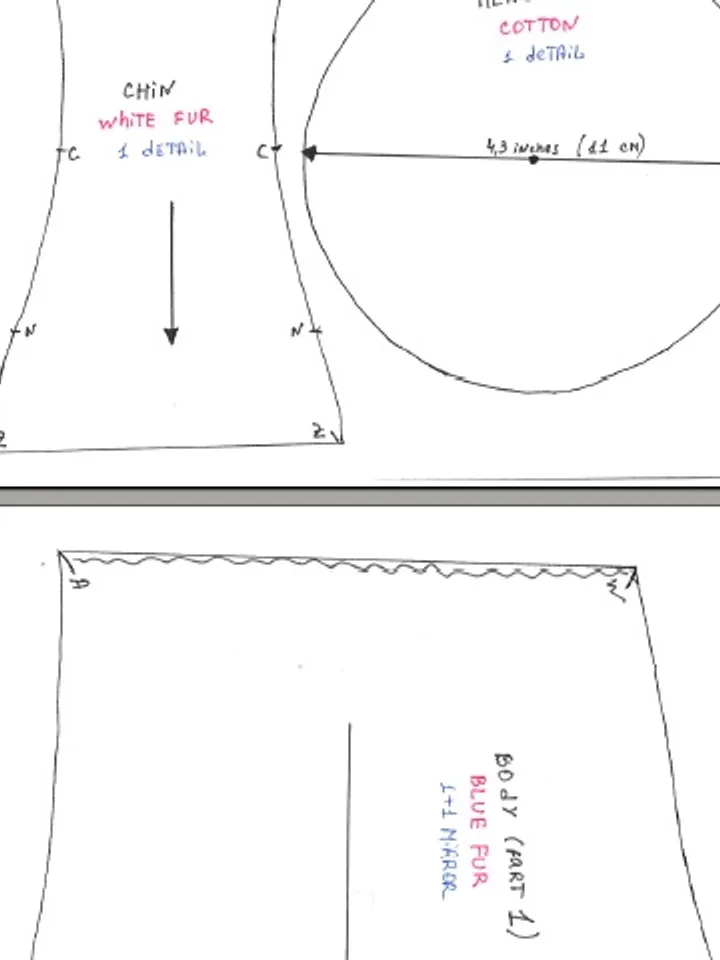 CHiN
WHiTE FUR
1 dETAiL
C
C
N
N
Z
Z
COTTON
1 dETAiL
4,3 inches (11 cm)
A
BOdY (PART 1)
BLUE FUR
1+1 MiRROR